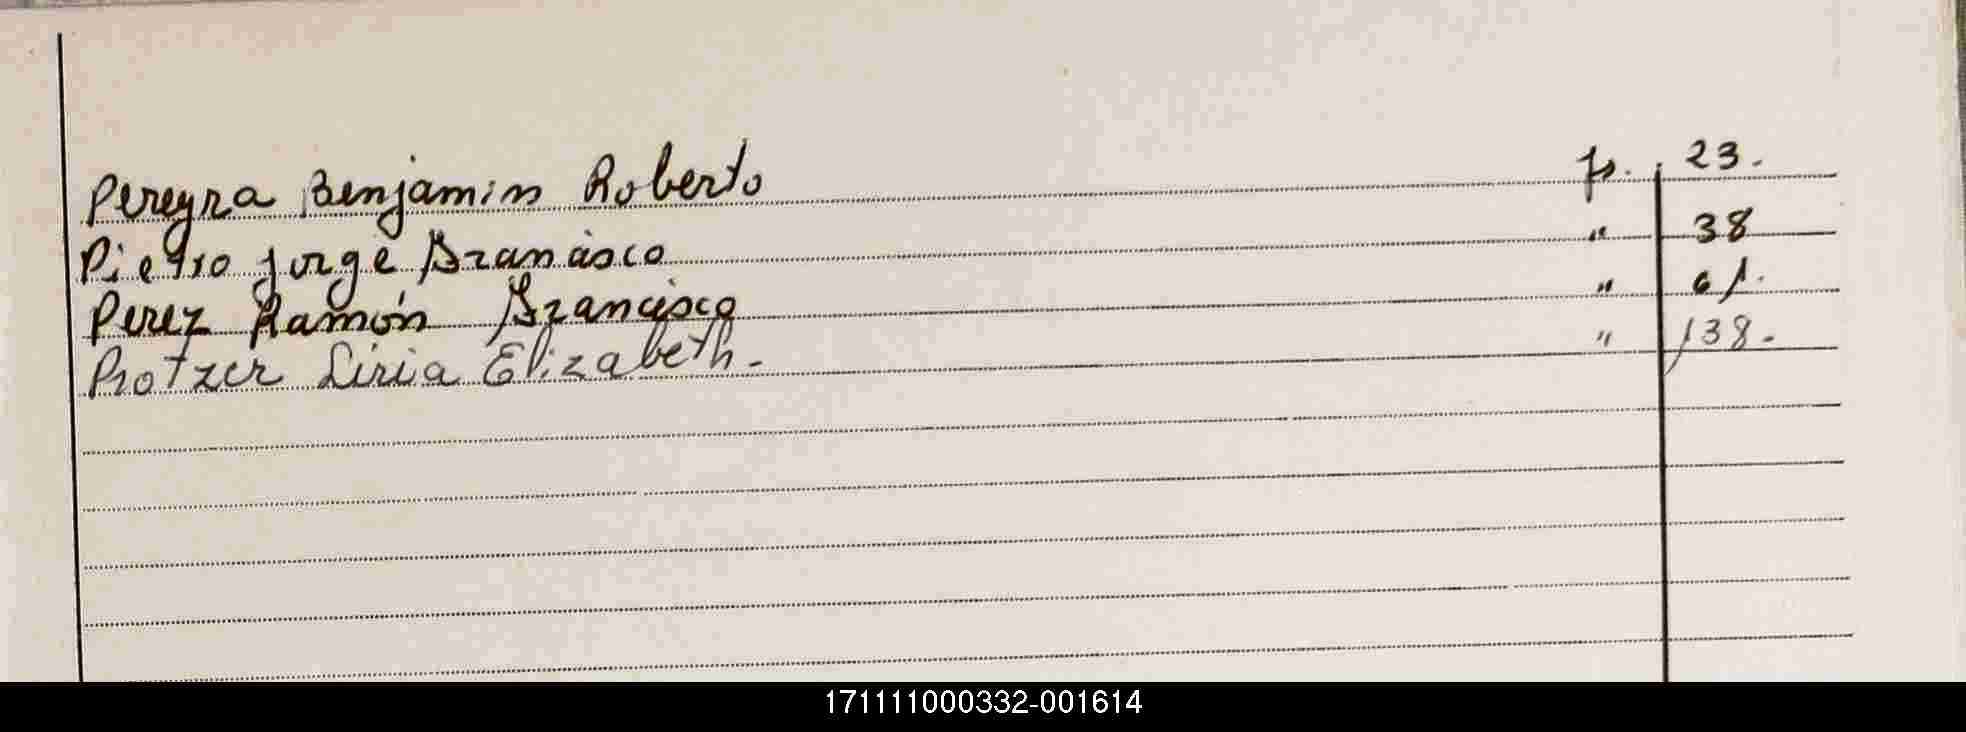 Pereyra Benjamin Roberto fs. 23.
Pietro Jorge Francisco " 38
Perez Ramón Francisco " 61.
Protzer Liria Elizabeth. " 138.
171111000332-001614